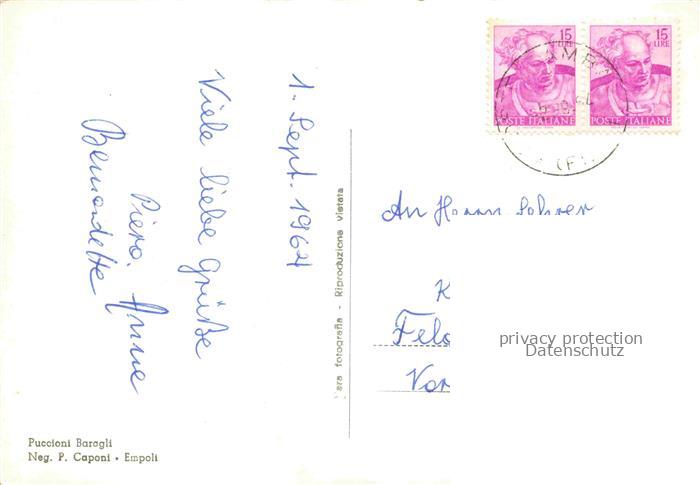 1. Sept. 1964
Viele liebe Grüße
Piero, Anne
Bernardette
15
LIRE
POSTE ITALIANE
15
LIRE
POSTE ITALIANE
An Herrn
K
Feld
Vor
privacy protection
Datenschutz
Vera fotografia - Riproduzione vietata
Puccioni Baragli
Neg. P. Caponi - Empoli